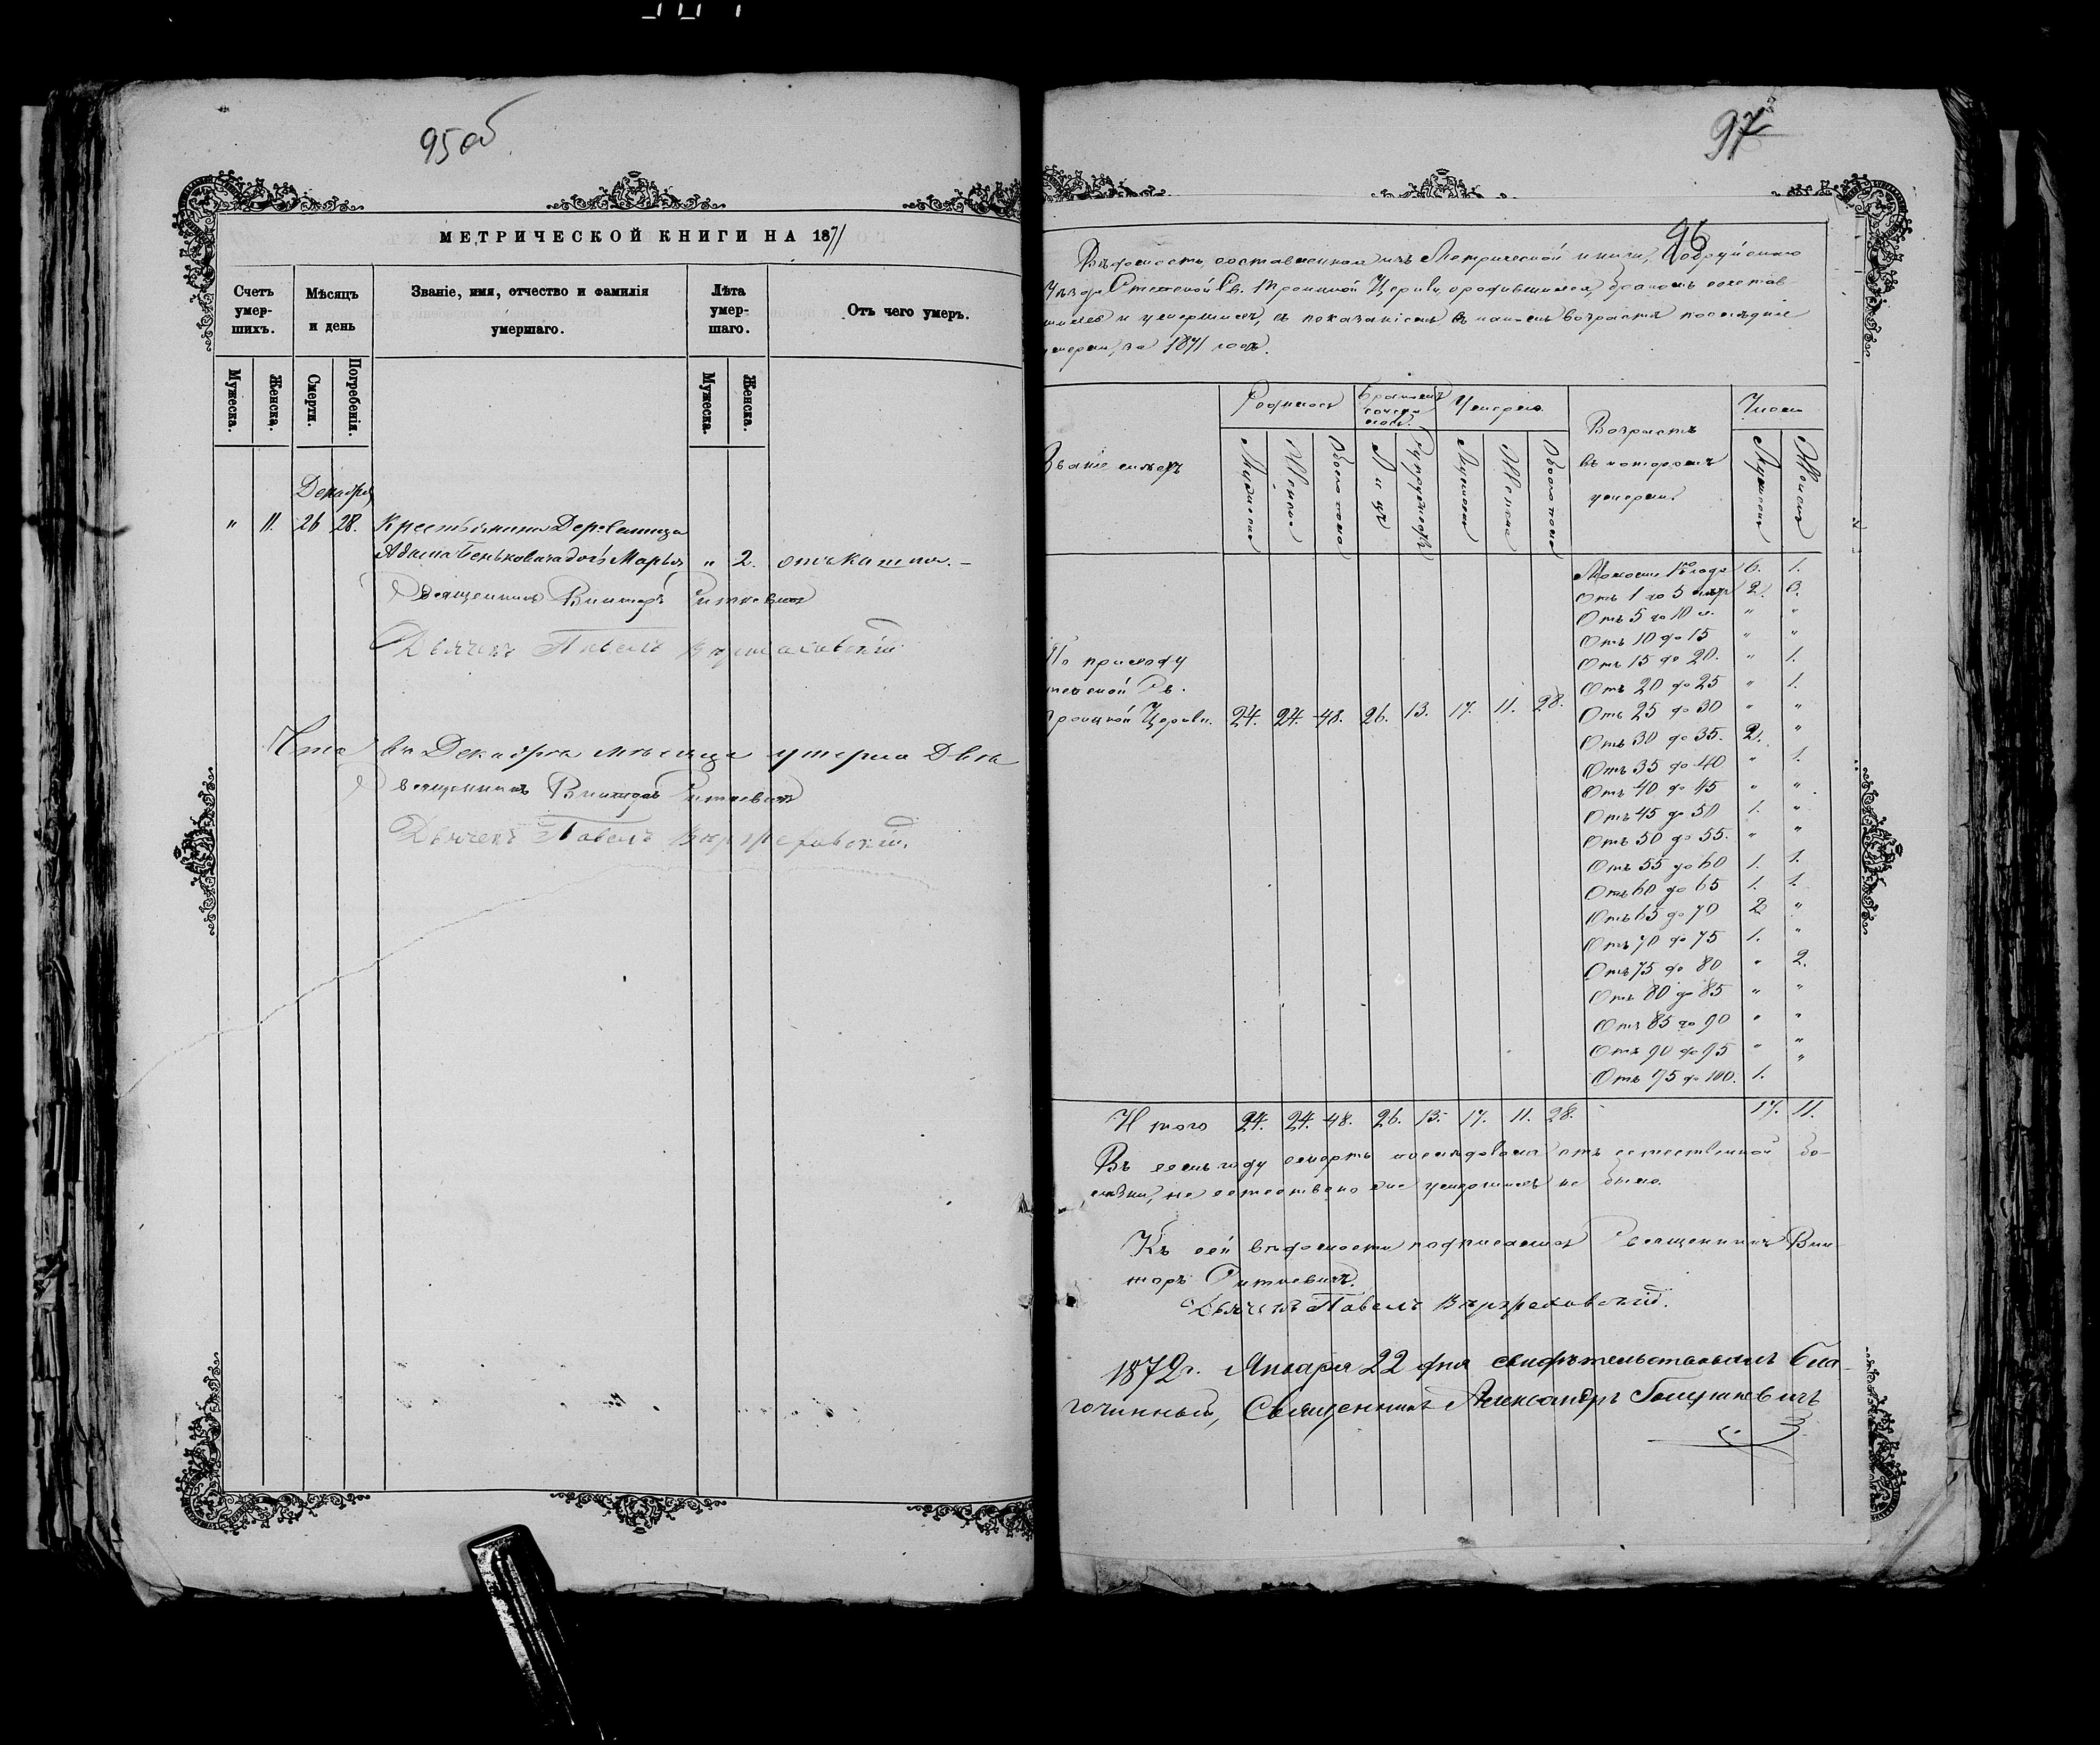 95об
МЕТРИЧЕСКОЙ КНИГИ НА 1871
Счетъ умер-шихъ.
Мѣсяцъ и день
Званіе, имя, отчество и фамилія умершаго.
Лѣта умер-шаго.
Отъ чего умеръ.
Мужеска.
Женска.
Смерти.
Погребенія.
Мужеска.
Женска.
Декабря
" 11. 26 28. Крестьянина Дер.
Адама Беньковича дочь Марья " 2. отъ кашля. –
Священникъ Викторъ
Дьячекъ Павелъ
Что въ Декабрѣ мѣсяце умерло Два
Священникъ Викторъ
Дьячекъ Павелъ
97
96
Вѣдомость, составленная изъ Метрической книги, Бобруйскаго
Уѣзда Св. Троицкой Церкви, о родившихся, бракомъ сочетав-
шихся и умершихъ, съ показаніемъ въ какомъ возрастѣ послѣдніе
умерли, за 1871 годъ.
Званіе
Родилось
Бракомъ
Умерло.
Возрастъ въ которомъ умерли.
Число
Мужеска
Женска
Обоего пола
Лицъ
Супружествъ
Мужеска
Женска
Обоего пола
Мужеска
Женска
Моложе 1го года 6. 1.
Отъ 1 до 5 лѣтъ 2. 3.
Отъ 5 до 10 л. " "
Отъ 10 до 15 " "
Отъ 15 до 20. " 1.
Отъ 20 до 25 " 1.
Отъ 25 до 30 " "
Отъ 30 до 35. 2. "
Отъ 35 до 40 " 1.
Отъ 40 до 45 " "
Отъ 45 до 50 1. "
Отъ 50 до 55. " "
Отъ 55 до 60 1. 1.
Отъ 60 до 65 1. 1.
Отъ 65 до 70 2 "
Отъ 70 до 75 1. "
Отъ 75 до 80 " 2.
Отъ 80 до 85 " "
Отъ 85 до 90 " "
Отъ 90 до 95 " "
Отъ 95 до 100. 1. "
По приходу
Св.
Троицкой Церкви. 24. 24. 48. 26. 13. 17. 11. 28.
Итого 24. 24. 48. 26. 13. 17. 11. 28. 17. 11.
Въ семъ году смерть послѣдовала отъ естественной бо-
лѣзни, не естественно же умершихъ не было.
Къ сей вѣдомости подписались Священникъ Вик-
торъ
Дьячекъ Павелъ
1872 г. Января 22 дня свидѣтельствовалъ Бла-
гочинный, Священникъ Александръ